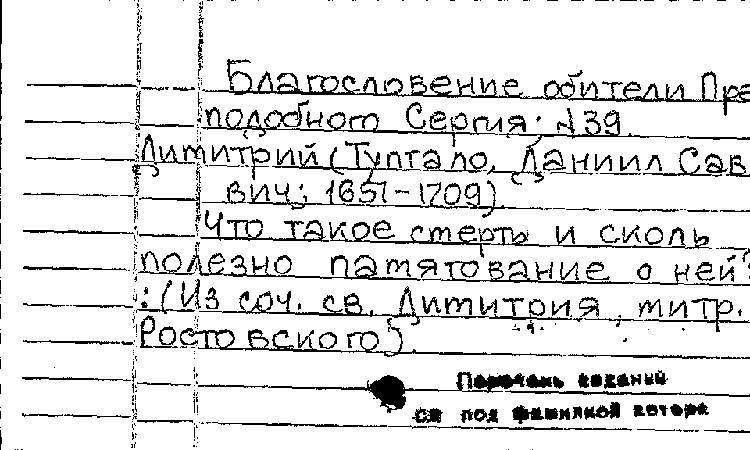 Благословение обители Пре
подобного Сергия; №39.
Димитрий (Туптало, Даниил Сав
вич; 1651-1709)
Что такое смерть и сколь
полезно памятование о ней?
: (Из соч. св. Димитрия, митр.
Ростовского).
Перечень изданий
см под фамилией автора